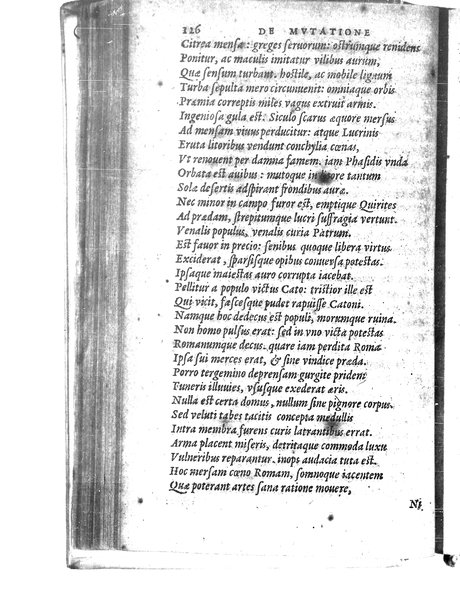 126 DE MVTATIONE
Citrea mensæ: greges seruorum: ostrumque renidens
Ponitur, ac maculis imitatur vilibus aurum,
Quæ sensum turbant. hostile, ac mobile lignum
Turba sepulta mero circumuenit: omniaque orbis
Præmia correptis miles vagus extruit armis.
Ingeniosa gula est: Siculo scarus æquore mersus
Ad mensam viuus perducitur: atque Lucrinis
Eruta litoribus vendunt conchylia cœnas,
Vt renouent per damna famem. iam Phasidis vnda
Orbata est auibus: mutoque in litore tantum
Solæ desertis adspirant frondibus auræ.
Nec minor in campo furor est, emptique Quirites
Ad prædam, strepitumque lucri suffragia vertunt.
Venalis populus, venalis curia Patrum.
Est fauor in precio: senibus quoque libera virtus
Exciderat, sparsisque opibus conuersa potestas.
Ipsaque maiestas auro corrupta iacebat.
Pellitur a populo victus Cato: tristior ille est
Qui vicit, fascesque pudet rapuisse Catoni.
Namque hoc dedecus est populi, morumque ruina.
Non homo pulsus erat: sed in vno victa potestas
Romanumque decus. quare iam perdita Roma
Ipsa sui merces erat, & sine vindice præda.
Porro tergemino deprensam gurgite pridem
Tuneris illuuies, vsusque exederat æris.
Nulla est certa domus, nullum sine pignore corpus.
Sed veluti tabes tacitis concepta medullis
Intra membra furens curis latrantibus errat.
Arma placent miseris, detritaque commoda luxu
Vulneribus reparantur. inops audacia tuta est.
Hoc mersam cœno Romam, somnoque iacentem
Quæ poterant artes sana ratione mouere,
Ni